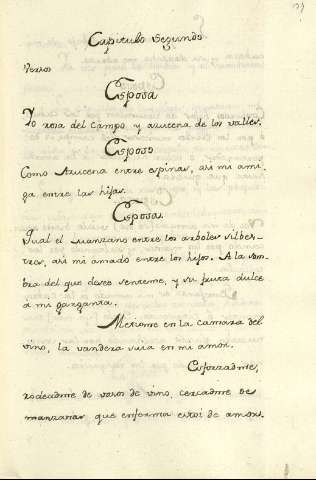 Capitulo Segundo
Verso
Esposa
Yo rosa del campo y azucena de los valles.
Esposo
Como Azucena entre espinas, asi mi ami-
ga entre las hijas.
Esposa
Qual el manzano entre los arboles silbes-
tres, asi mi amado entre los hijos. A la som-
bra del que deseo senteme, y su fruta dulce
a mi garganta.
Metiome en la camara del
vino, la vandera suia en mi amor.
Esforzadme,
rodeadme de vasos de vino, cercadme de
manzanas que enferma estoi de amor.